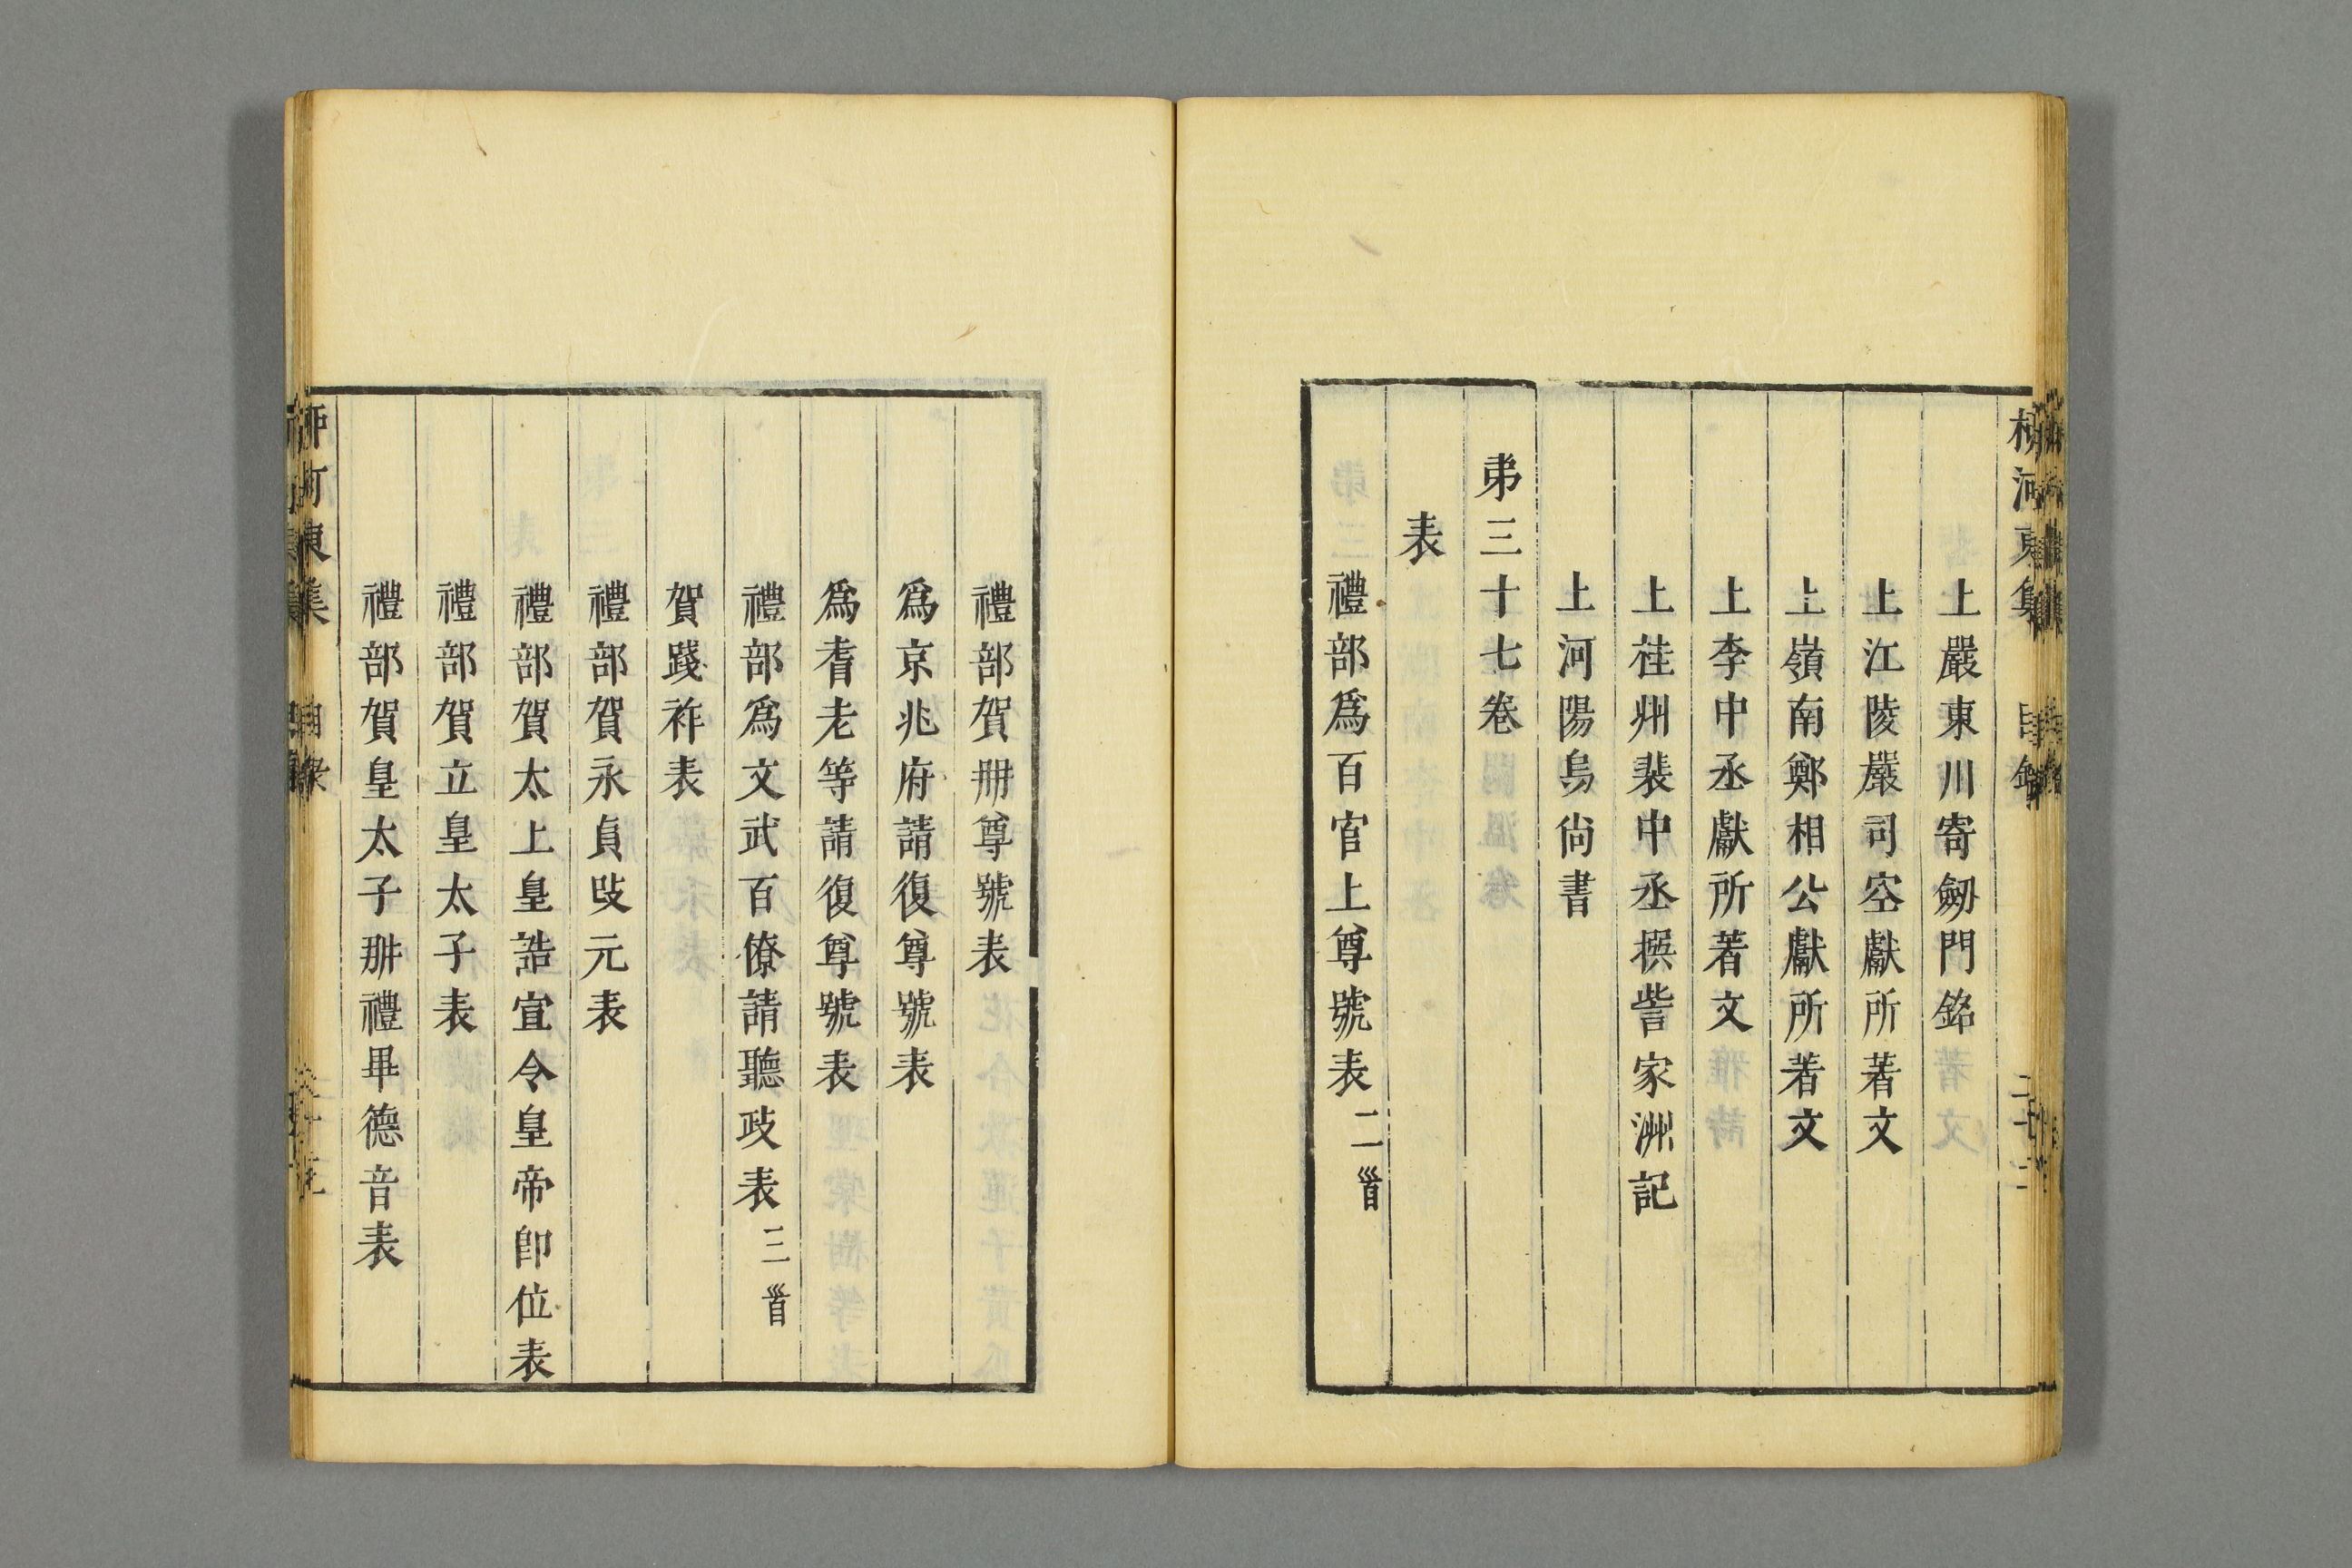 柳河東集 目錄
上嚴東川寄劒門銘
上江陵嚴司空獻所著文
上嶺南鄭相公獻所著文
上李中丞獻所著文
上桂州裴中丞撰訾家洲記
上河陽烏尙書
弟三十七卷
表
禮部爲百官上尊號表二首
禮部賀冊尊號表
爲京兆府請復尊號表
爲耆老等請復尊號表
禮部爲文武百僚請聽政表三首
賀踐祚表
禮部賀永貞改元表
禮部賀太上皇誥宜令皇帝卽位表
禮部賀立皇太子表
禮部賀皇太子冊禮畢德音表
柳河東集 目錄